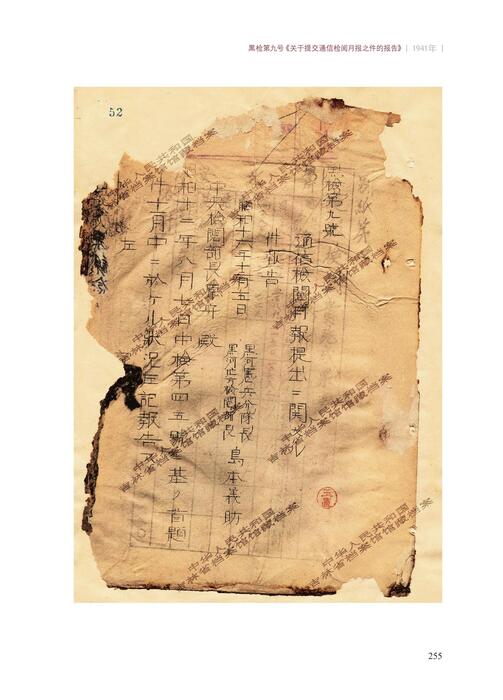 黑检第九号《关于提交通信检阅月报之件的报告》 | 1941年 |
52
黑檢第九號
通信檢閲月報提出ニ關スル
件報告
昭和十六年十一月五日
黑河憲兵分隊長
黑河地方檢閲部長 島本義助
中央檢閲部長 殿
和十二年八月七日中檢第四五號ニ基ク首題
件十月中ニ於ケル狀況左記報告ス
左
中华人民共和国
吉林省档案馆馆藏档案
中华人民共和国
吉林省档案馆馆藏档案
中华人民共和国
吉林省档案馆馆藏档案
中华人民共和国
吉林省档案馆馆藏档案
255